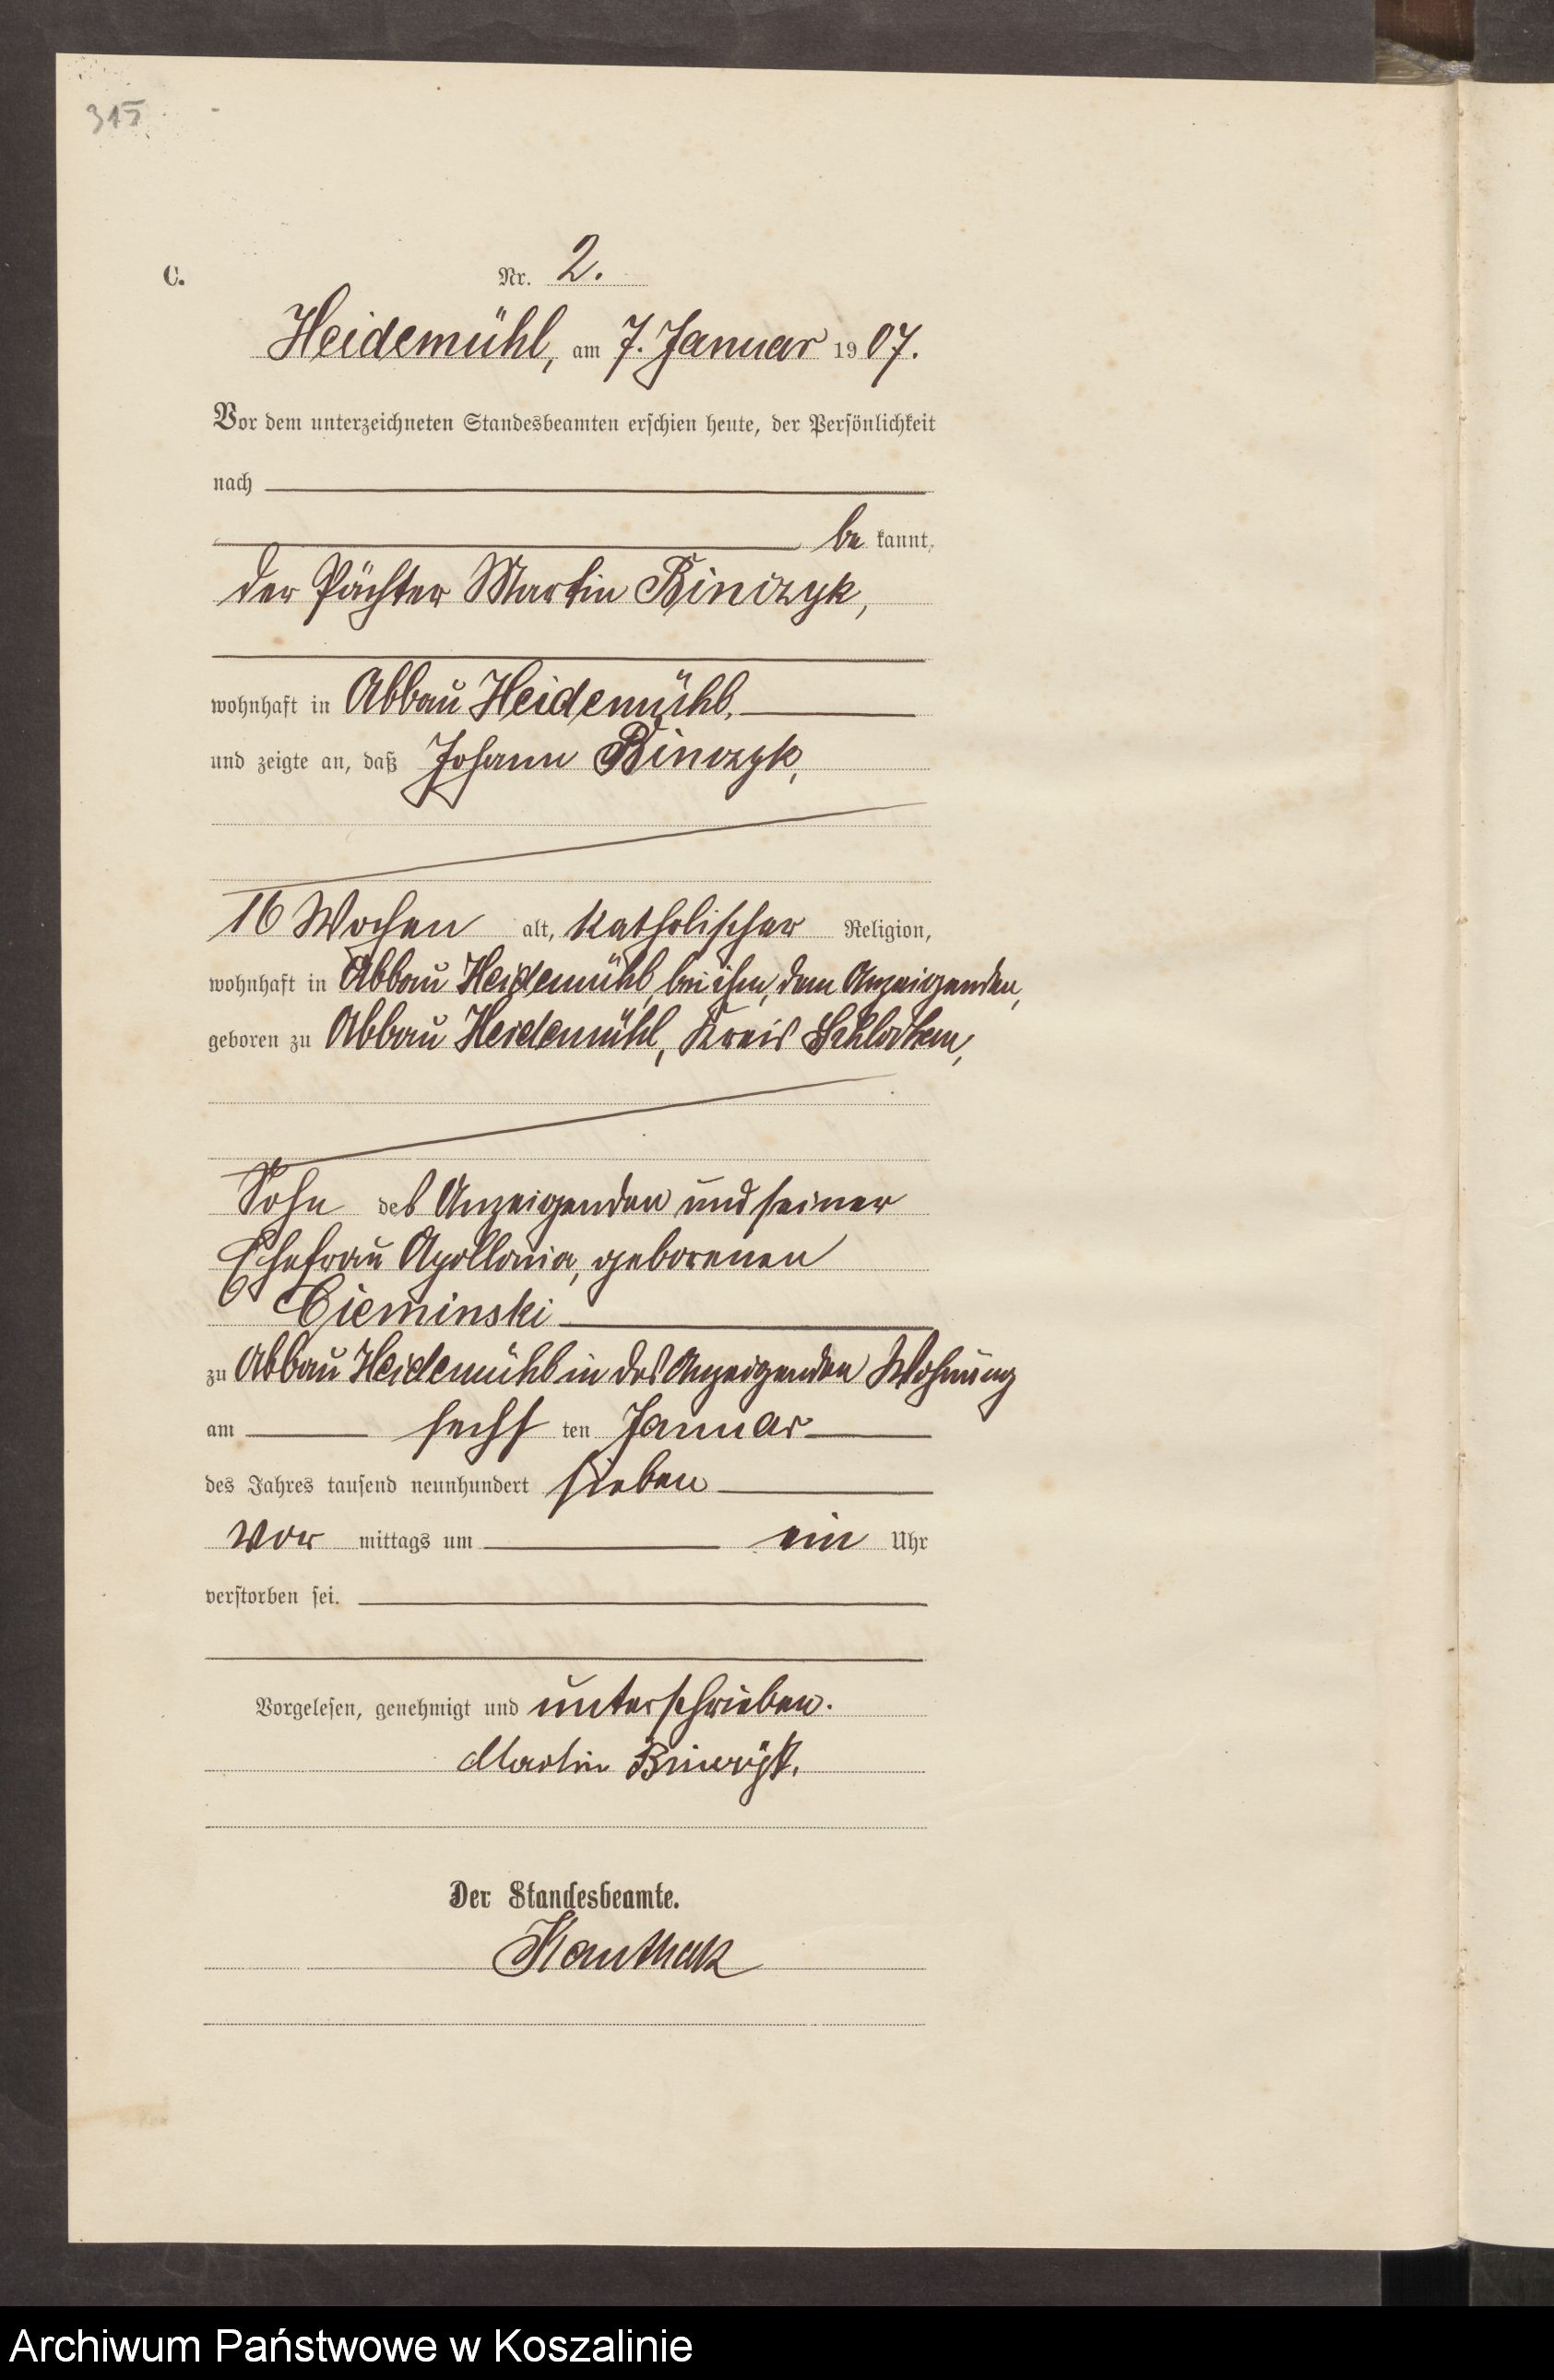 315
C.
Nr. 2.
Heidemühl, am 7. Januar 1907.
Vor dem unterzeichneten Standesbeamten erschien heute, der Persönlichkeit
nach
bekannt,
der Pächter Martin Binczyk,
wohnhaft in Abbau Heidemühl,
und zeigte an, daß Johann Binczyk,
16 Wochen alt, katholischer Religion,
wohnhaft in Abbau Heidemühl, bei ihm, dem Anzeigenden,
geboren zu Abbau Heidemühl, Kreis Schlochau,
Sohn des Anzeigenden und seiner
Ehefrau Apollonia, geborenen
Cieminski
zu Abbau Heidemühl in des Anzeigenden Wohnung
am sechsten Januar
des Jahres tausend neunhundert sieben
Vormittags um ein Uhr
verstorben sei.
Vorgelesen, genehmigt und unterschrieben.
Martin
Der Standesbeamte.
Archiwum Państwowe w Koszalinie